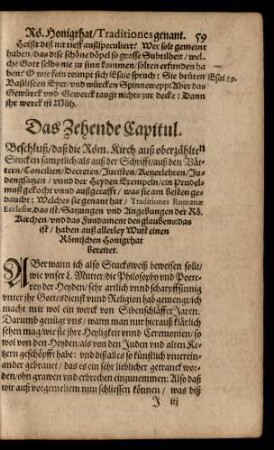 Rö. Honigrhat/ Traditiones genant. 59
Heisst diß nit tieff außspeculiert? Wer solt gemeint
haben/das dise schöne döpel so grosse Subtilheit/wel-
che Gott selbs nie zu sinn kommen/ solten erfunden ha-
ben? O wie fein reimpt sich Esaie spruch: Sie brüten
Esai 59.
Basiliscen Eyer/ vnd würcken Spinneweppe Aber das
Gewürck vnd Geweck taugt nichts zur decke: Dann
ihr werck ist Müh.
Das Zehende Capitul.
Beschluß/ daß die Röm. Kirch auß oberzählten
Stucken sämptlich/als auß der Schrifft/auß den Vät-
tern/Concilien/Decreten/ Juristen/ Ketzerlehren/ Ju-
dengsatzen/ vnnd der Heyden Exempeln/ ein Prudel-
muß gekocht vnnd außgerafft/ was sie am besten ge-
daucht: Welches sie genant hat/ Traditiones Romanæ
Ecclesiæ, das ist/ Satzungen vnd Angebungen der Rö.
Kirchen vnd das Fundament des glaubens: das
ist/ haben auß allerley Wust einen
Römischen Honigrhat
bereitet.
ABer wann ich also Stucksweiß beweisen solt/
wie vnser L. Mutter/ die Philosophy vnd Poete-
rey der Heyden/ sehr artlich vnnd scharpffsinnig
vnter jhr Gottsdienst vnnd Religion hab gemengt/ich
macht mir wol ein werck von Sibenschläffer Jaren.
Darumb genügt vns/ warm man nur hierauß klärlich
sehen mag/wie sie jhr Heyligkeit vnnd Ceremonien/ so
wol von den Heyden/als von den Juden vnd alten Ke-
tzern geschöpfft habe: vnd diß alles so künstlich vnterein-
ander gebrauet/ das es ein sehr lieblicher getranck wor-
den/ ohn grawen vnd erbrechen einzunemmen: Also daß
wir auß vorgemeltem nun schliessen können/ was diß
J iij